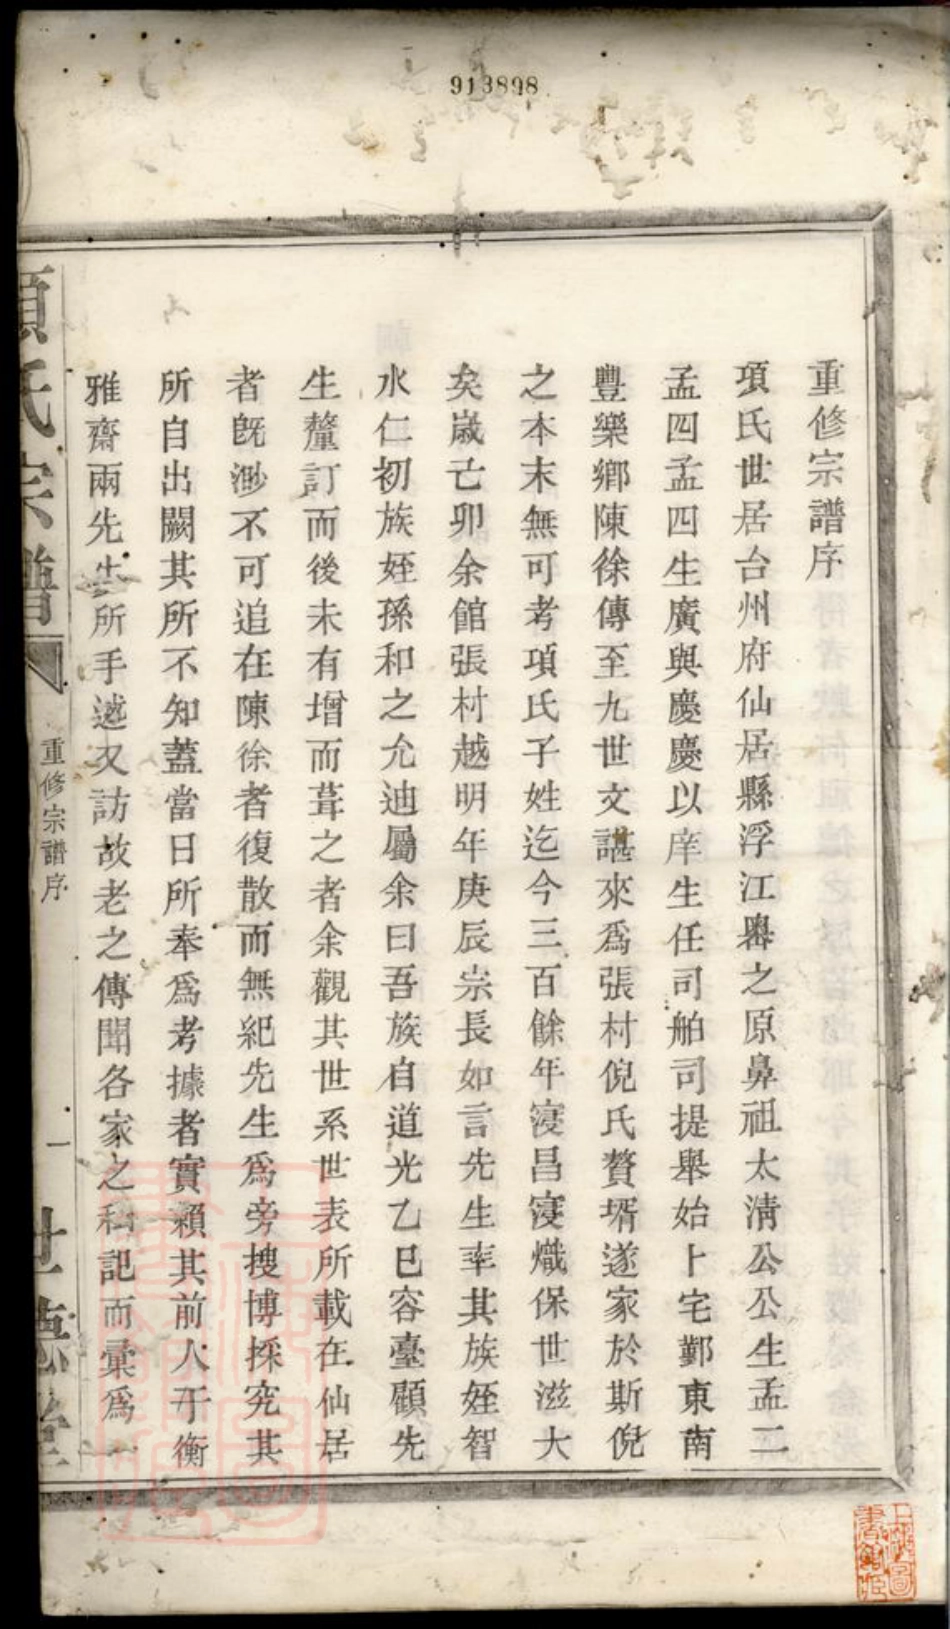 913898
重修宗譜序
項氏世居台州府仙居縣浮江嶴之原鼻祖太淸公公生孟二
孟四孟四生廣與慶慶以庠生任司舶司提舉始卜宅鄞東南
豐樂鄉陳徐傳至九世文諶來爲張村倪氏贅壻遂家於斯倪
之本末無可考項氏子姓迄今三百餘年寖昌寖熾保世滋大
矣歲己卯余館張村越明年庚辰宗長如言先生率其族姪智
水仁初族姪孫和之允迪屬余曰吾族自道光乙巳容臺顧先
生釐訂而後未有增而葺之者余觀其世系世表所載在仙居
者旣渺不可追在陳徐者復散而無紀先生爲旁搜博採究其
所自出闕其所不知蓋當日所奉爲考據者實賴其前人于衡
雅齋兩先生所手述又訪故老之傳聞各家之私記而彙爲一
項氏宗譜
重修宗譜序
一
世德堂
上海圖書館藏